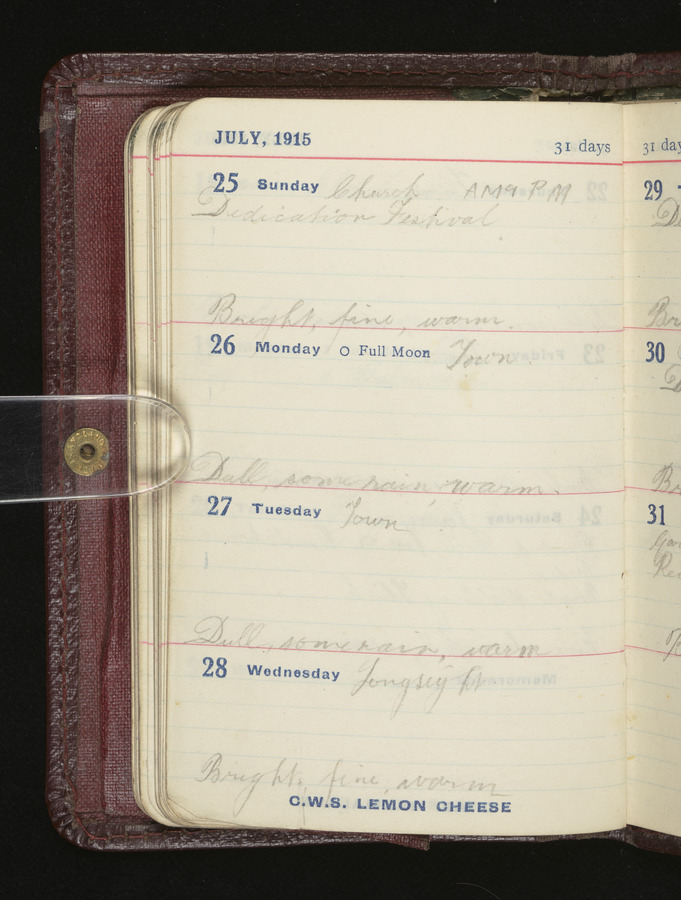 JULY, 1915 31 days
25 Sunday Church AM & PM
Dedication Festival
Bright, fine, warm.
26 Monday O Full Moon Town.
Dull, some rain, warm.
27 Tuesday Town
Dull, some rain, warm
28 Wednesday
Bright, fine, warm
C.W.S. LEMON CHEESE
31 day
29
Br
30
D
Br
31